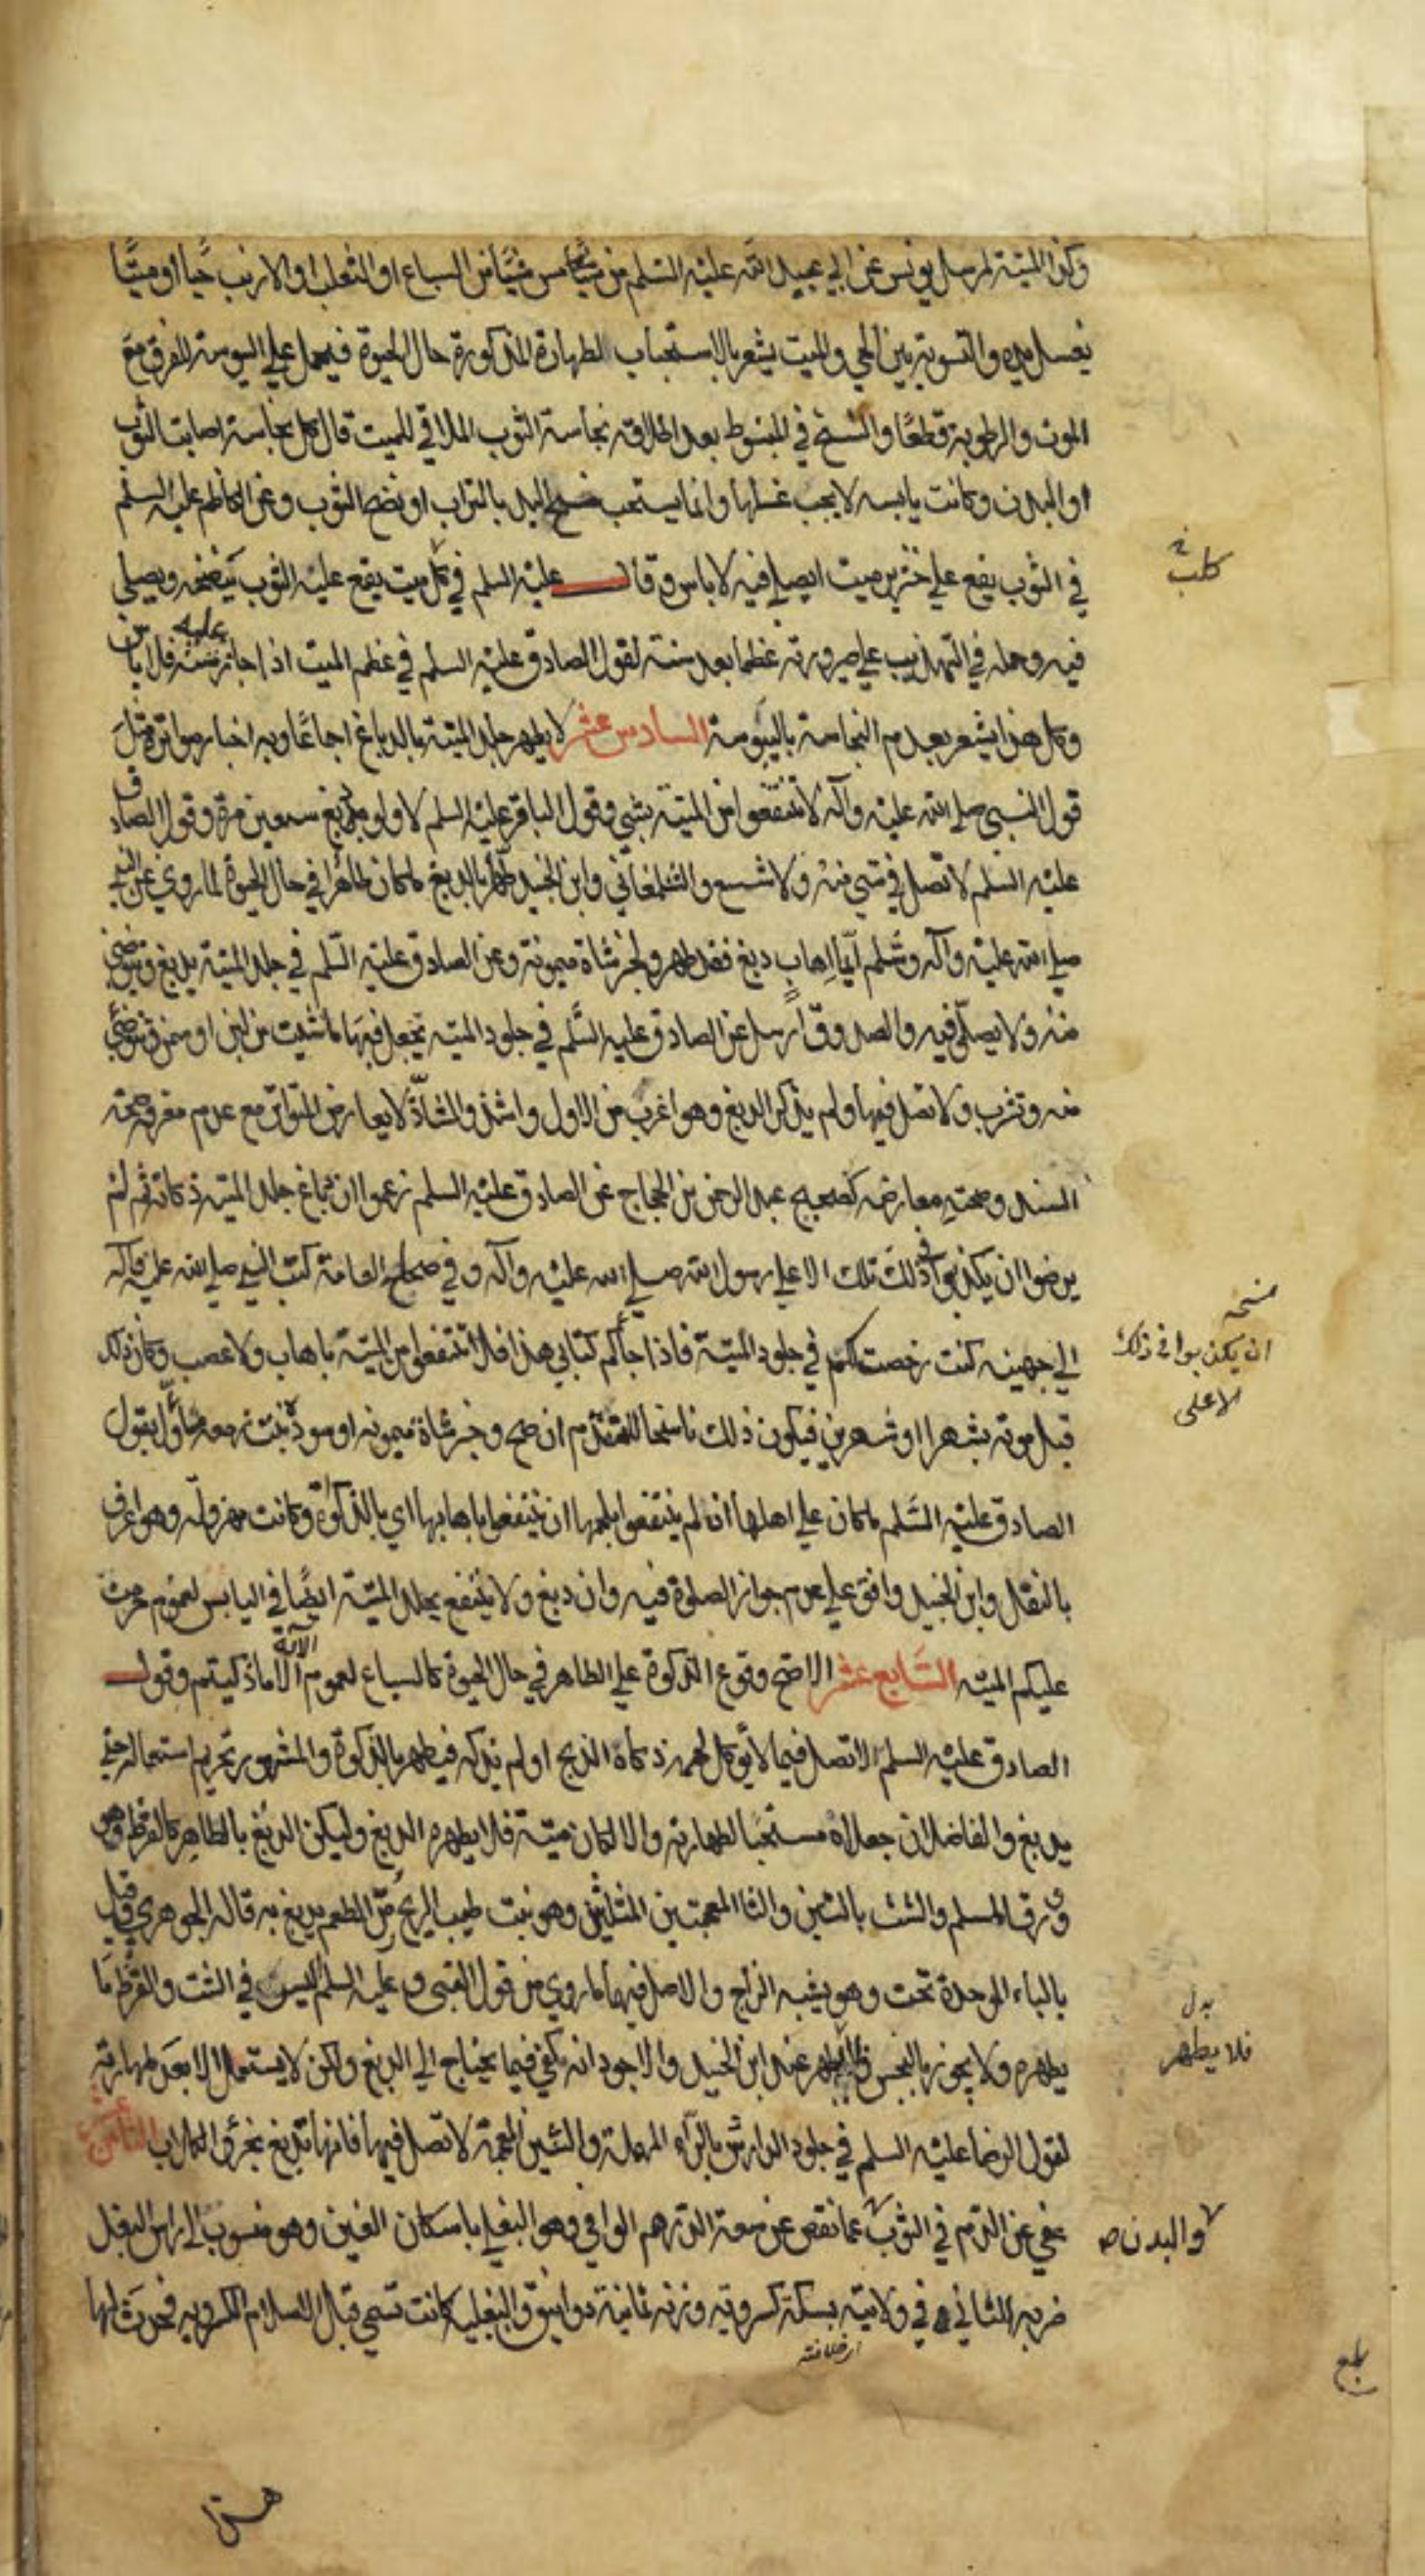 وكذا الميتة لمرسل يونس عن ابي عبيد الله عليه السلم من مس شيئا من السباع او الثعلب او الارنب حيا او ميتا
يغسل يده والتسوية بين الحي والميت يشعر بالاستحباب لطهارة المذكورة حال الحيوة فيحمل على اليبوسة للفرق مع
الموت والرطوبة قطعا والشيخ في المبسوط بعد اطلاقه نجاسة الثوب الملاقي للميت قال كل نجاسة اصابت الثوب
او البدن وكانت يابسه لا يجب غسلها وانما يستحب مسح اليد بالتراب او نضح الثوب وعن الكاظم عليه السلم
في الثوب يقع على خنزير ميت ايصلي فيه لا باس وقال عليه السلم في كل ميت يقع عليه الثوب ينضحه ويصلي
كلب خ
فيه وحمله في التهذيب على صيرورته عظما بعد سنة لقول الصادق عليه السلم في عظم الميت اذا جاز عليه سنة فلا باس
وكل هذا يشعر بعدم النجاسة باليبوسة السادس عشر لا يطهر جلد الميتة بالدباغ اجماعا وبه اخبار متواترة مثل
قول النبي صلى الله عليه وآله لا تنتفعوا من الميتة بشي وقول الباقر عليه السلم لا ولو دبغ سبعين مرة وقول الصادق
عليه السلم لا تصل في شي منه ولا شسع والشلمغاني وابن الجنيد طهر بالدبغ ما كان طاهرا في حال الحيوة لما روي عن النبي
صلى الله عليه وآله وسلم ايما اهاب دبغ فقد طهر ولخبر شاة ميمونة وعن الصادق عليه السلم في جلد الميتة يدبغ ويتوضى
منه ولا يصلى فيه والصدوق ارسل عن الصادق عليه السلم في جلود الميته تجعل فيها ما شيت من لبن او سمن وتتوضى
منه وتشرب ولا تصل فيها ولم يذكر الدبغ وهو اغرب من الاول واشذ والشاذ لا يعارض المتواتر مع عدم معرفة صحة
السند وصحة معارضه كصحيح عبد الرحمن بن الحجاج عن الصادق عليه السلم زعموا ان دباغ جلد الميته ذكاته ثم لم
يرضوا ان يكذبوا في ذلك تلك الا على رسول الله صلى الله عليه وآله وفي صحاح العامة كتب النبي صلى الله عليه وآله
نسخه
ان يكذبوا في ذلك
الا على
الى جهينه كنت رخصت لكم في جلود الميتة فاذا جاكم كتابي هذا فلا تنتفعوا من الميتة باهاب ولا عصب وكان ذلك
قبل موته بشهر او شهرين فيكون ذلك ناسخا للمتقدم ان صح وخبر شاة ميمونه او سودة بنت زمعه متأول بقول
الصادق عليه السلم ما كان على اهلها اذ لم ينتفعوا بلحمها ان ينتفعوا باهابها اي بالذكوة وكانت مهزولة وهو اعرف
بالنقل وابن الجنيد وافق على عدم جواز الصلوة فيه وان دبغ ولا ينتفع بجلد الميتة ايضا في اليابس لعموم حرمت
عليكم الميته السابع عشر الاصح وقوع الذكوة على الطاهر في حال الحيوة كالسباع لعموم الاية الا ما ذكيتم وقول
الصادق عليه السلم الا تصل فيما لا يوكل لحمه ذكاه الذبح او لم يذكه فيطهر بالذكوة والمشهور تحريم استعماله حتى
يدبغ والفاضلان جعلاه مستحبا لطهارته والا لكان ميتة فلا يطهره الدبغ وليكن الدبغ بالطاهر كالقرظ وهو
ورق السلم والشث بالشين والثا المعجمتين المثلثين وهو نبت طيب الريح مر الطعم يدبغ به قاله الجوهري وقيل
بالباء الموحدة تحت وهو يشبه الزاج والاصل فيهما ما روي من قول النبي عليه السلم اليس في الشث والقرظ ما
يطهره ولا يجوز بالنجس فلا يطهر عند ابن الجنيد والاجود انه يكفي فيما يحتاج الى الدبغ ولكن لا يستعمل الا بعد طهارته
بدل
فلا يطهر
لقول الرضا عليه السلم في جلود الدارش بالراء المهملة والشين المعجمة لا تصل فيها فانها تدبغ بخرؤ الكلاب الثامن عشر
عفي عن الدم في الثوب عما نقص عن سعة الدرهم الوافي وهو البغلي باسكان الغين وهو منسوب الى راس البغل
والبدن صح
ضربه للثاني في ولايته بسكة كسرويه وزنه ثمانية دوانيق والبغلية كانت تسمى قبل الاسلام الكسرويه فحدث لها
بلغ